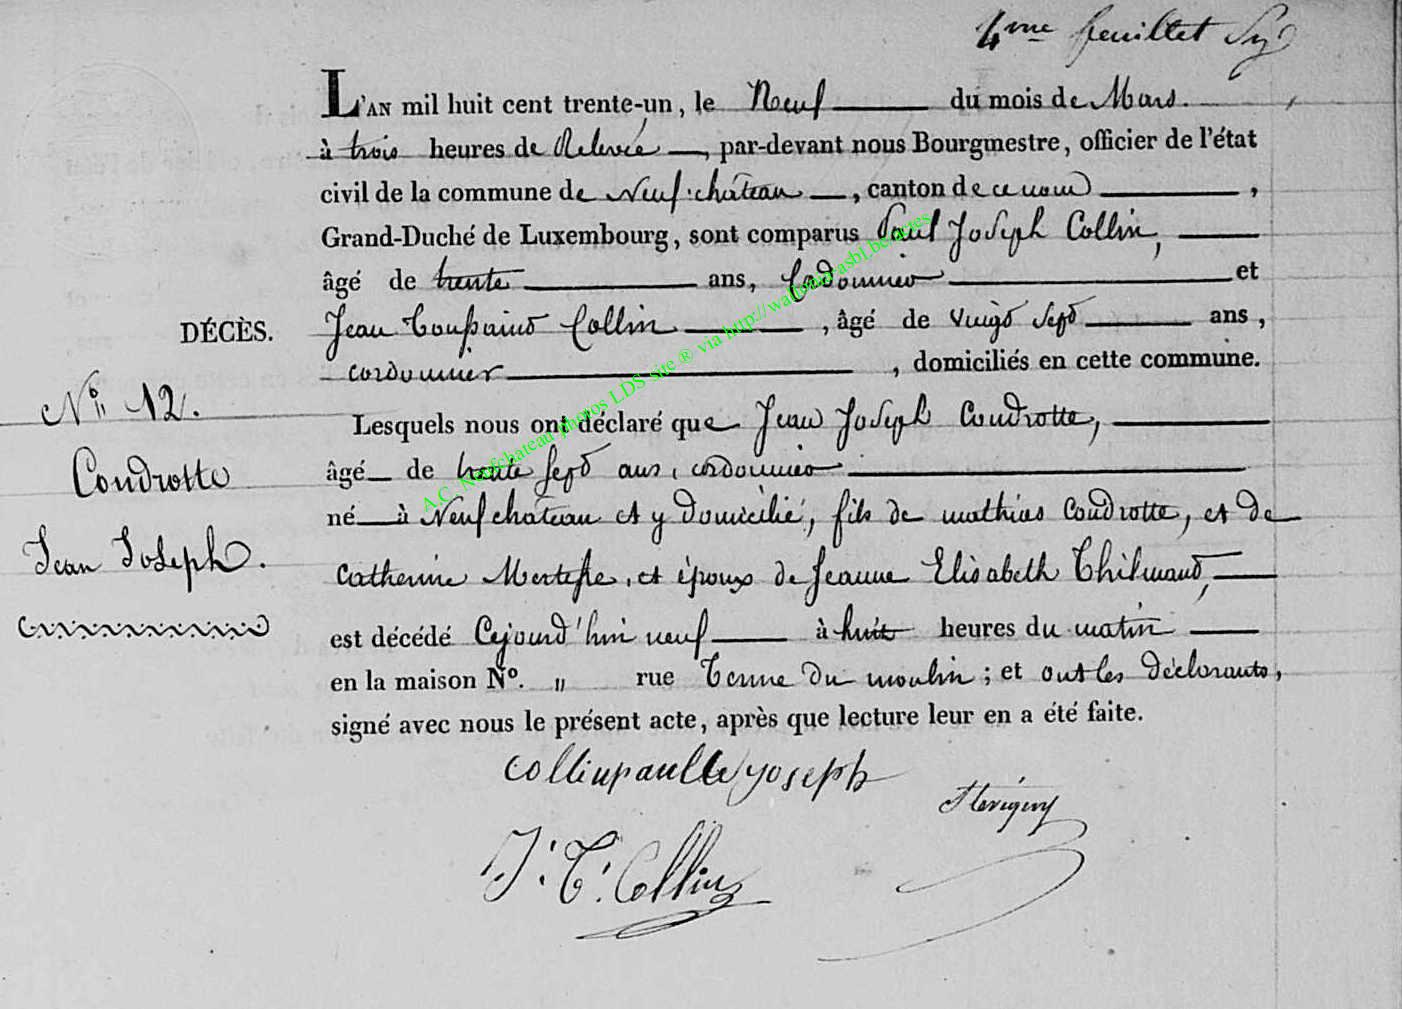 4me feuillet
L'AN mil huit cent trente-un, le Neuf du mois de Mars.
à trois heures de Relevée, par-devant nous Bourgmestre, officier de l'état
civil de la commune de Neufchâteau, canton de ce nom,
Grand-Duché de Luxembourg, sont comparus Paul Joseph Collin,
âgé de trente ans, Cordonnier et
DÉCÈS.
Jean Toussaint Collin, âgé de vingt sept ans,
cordonnier, domiciliés en cette commune.
N° 12.
Lesquels nous ont déclaré que Jean Joseph Condrotte,
Condrotte
âgé de trente sept ans, cordonnier
né à Neufchâteau et y domicilié, fils de mathias Condrotte, et de
Jean Joseph.
Catherine et époux de Jeanne Elisabeth Thilmand,
est décédé Cejourd'hui neuf à huit heures du matin
en la maison N°. " rue Tenne du moulin; et ont les déclarants,
signé avec nous le présent acte, après que lecture leur en a été faite.
Collin paul joseph
J. T. Collin
A.C. Neufchateau photos LDS site ® via http://wallonia asbl.be/actes